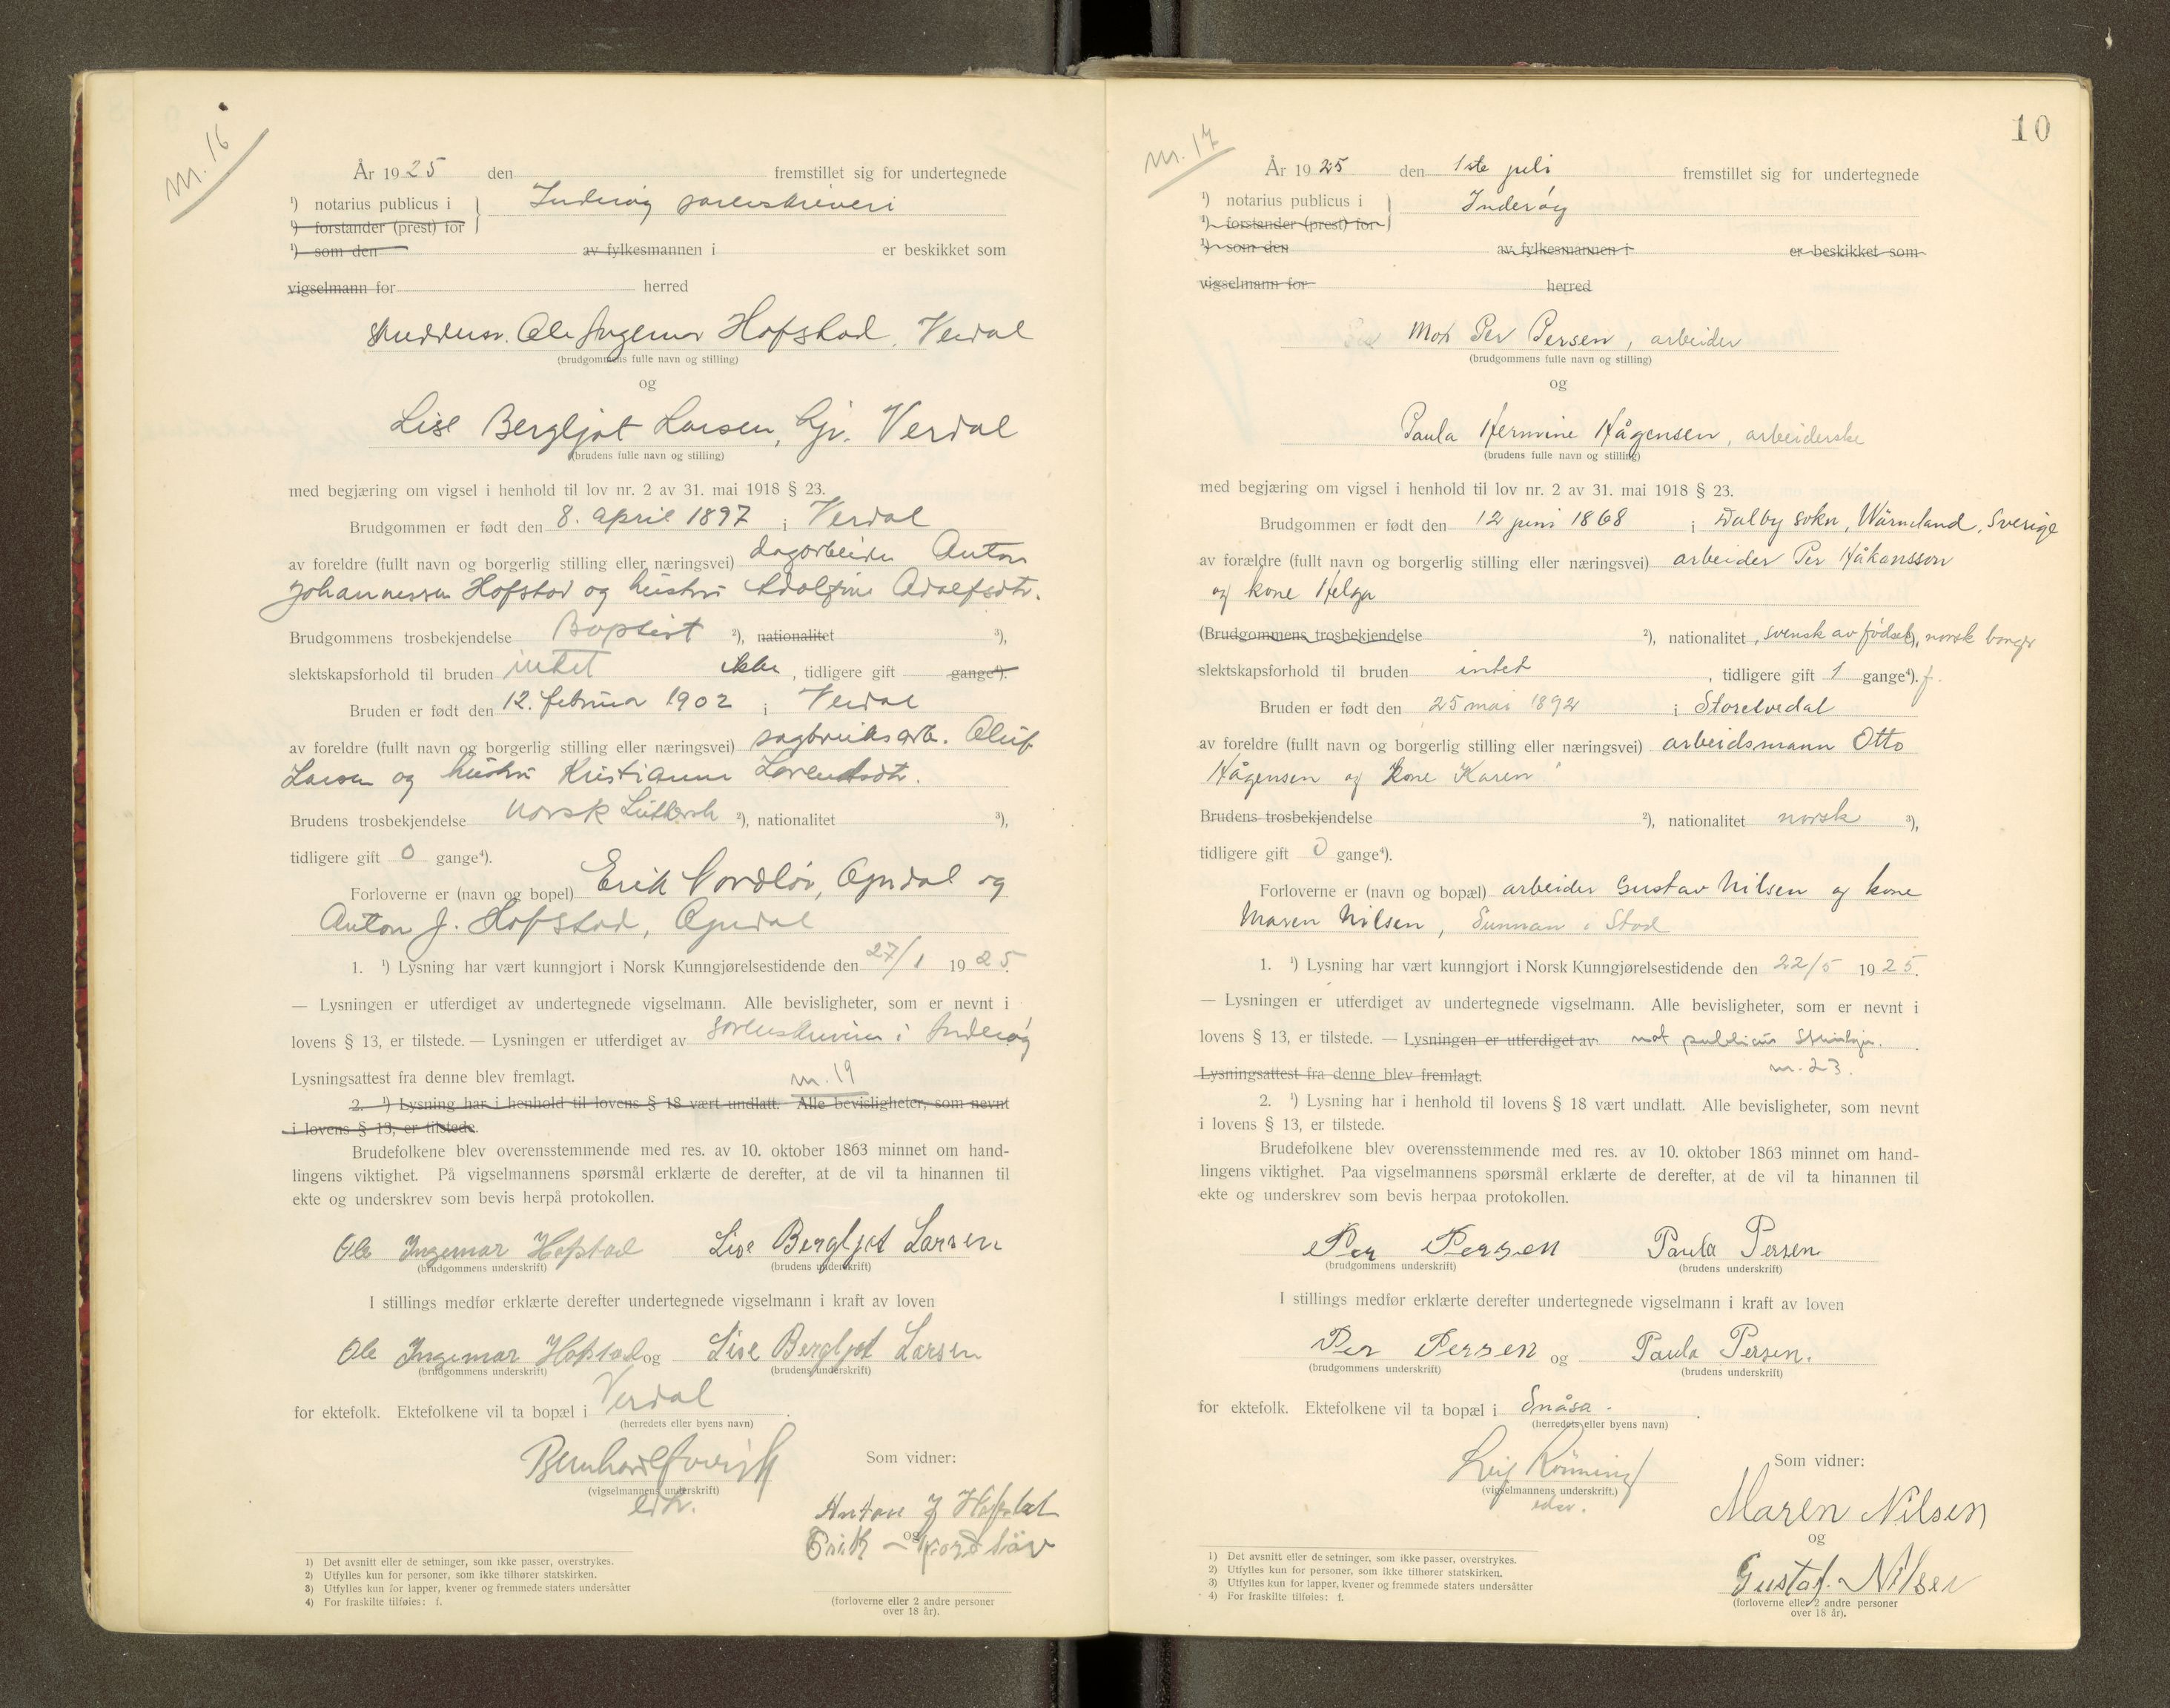 nr. 16
År 1925 den fremstillet sig for undertegnede
¹) notarius publicus i Inderøy sorenskriveri
¹) forstander (prest) for
¹) som den av fylkesmannen i er beskikket som
vigselmann for herred
Ole Ingemar Hofstad, Verdal
(brudgommens fulle navn og stilling)
og
Lise Bergljot Larsen, Verdal
(brudens fulle navn og stilling)
med begjæring om vigsel i henhold til lov nr. 2 av 31. mai 1918 § 23.
Brudgommen er født den 8. april 1897 i Verdal
av foreldre (fullt navn og borgerlig stilling eller næringsvei) dagarbeider Anton
Johannessen Hofstad og hustru Adolfine Adolfsdtr.
Brudgommens trosbekjendelse Baptist ²), nationalitet ³),
slektskapsforhold til bruden intet ikke, tidligere gift gange⁴).
Bruden er født den 12. februar 1902 i Verdal
av foreldre (fullt navn og borgerlig stilling eller næringsvei) sagbruksarb. Oluf
Larsen og hustru Kristianna Lorentsdtr.
Brudens trosbekjendelse norsk Luthersk ²), nationalitet ³),
tidligere gift 0 gange⁴).
Forloverne er (navn og bopel) Erik Nordløv, Ørndal og
Anton J. Hofstad, Ørndal
1. ¹) Lysning har vært kunngjort i Norsk Kunngjørelsestidende den 27/1 1925.
— Lysningen er utferdiget av undertegnede vigselmann. Alle bevisligheter, som er nevnt i
lovens § 13, er tilstede. — Lysningen er utferdiget av sorenskriveren i Inderøy
Lysningsattest fra denne blev fremlagt. nr. 19
2. ¹) Lysning har i henhold til lovens § 18 vært undlatt. Alle bevisligheter, som nevnt
i lovens § 13, er tilstede.
Brudefolkene blev overensstemmende med res. av 10. oktober 1863 minnet om hand-
lingens viktighet. På vigselmannens spørsmål erklærte de derefter, at de vil ta hinannen til
ekte og underskrev som bevis herpå protokollen.
Ole Ingemar Hofstad Lise Bergljot Larsen
(brudgommens underskrift) (brudens underskrift)
I stillings medfør erklærte derefter undertegnede vigselmann i kraft av loven
Ole Ingemar Hofstad og Lise Bergljot Larsen
(brudgommens underskrift) (brudens underskrift)
for ektefolk. Ektefolkene vil ta bopæl i Verdal.
(herredets eller byens navn)
Bernhard
(vigselmannens underskrift)
Som vidner:
Anton J Hofstad
og
Erik Nordløv
(forloverne eller 2 andre personer
over 18 år).
1) Det avsnitt eller de setninger, som ikke passer, overstrykes.
2) Utfylles kun for personer, som ikke tilhører statskirken.
3) Utfylles kun for lapper, kvener og fremmede staters undersåtter
4) For fraskilte tilføies: f.
10
nr. 17
År 1925 den 1ste juli fremstillet sig for undertegnede
¹) notarius publicus i Inderøy
¹) forstander (prest) for
¹) som den av fylkesmannen i er beskikket som
vigselmann for herred
Per Persen, arbeider
(brudgommens fulle navn og stilling)
og
Paula Hermine Hågensen, arbeiderske
(brudens fulle navn og stilling)
med begjæring om vigsel i henhold til lov nr. 2 av 31. mai 1918 § 23.
Brudgommen er født den 12 juni 1868 i Dalby sokn, Wärmland, Sverige
av forældre (fullt navn og borgerlig stilling eller næringsvei) arbeider Per Håkansson
og kone Helga
(Brudgommens trosbekjendelse ²), nationalitet, svensk av fødsel ³), norsk borger
slektskapsforhold til bruden intet, tidligere gift 1 gange⁴). f.
Bruden er født den 25 mai 1892 i Storelvedal
av foreldre (fullt navn og borgerlig stilling eller næringsvei) arbeidsmann Otto
Hågensen og kone Karen
Brudens trosbekjendelse ²), nationalitet norsk ³),
tidligere gift 0 gange⁴).
Forloverne er (navn og bopæl) arbeider Gustav Nilsen og kone
Maren Nilsen, Sunnan i Stod
1. ¹) Lysning har vært kunngjort i Norsk Kunngjørelsestidende den 22/5 1925.
— Lysningen er utferdiget av undertegnede vigselmann. Alle bevisligheter, som er nevnt i
lovens § 13, er tilstede. — Lysningen er utferdiget av not publicus Steinkjer.
Lysningsattest fra denne blev fremlagt. nr. 23.
2. ¹) Lysning har i henhold til lovens § 18 vært undlatt. Alle bevisligheter, som nevnt
i lovens § 13, er tilstede.
Brudefolkene blev overensstemmende med res. av 10. oktober 1863 minnet om hand-
lingens viktighet. Paa vigselmannens spørsmål erklærte de derefter, at de vil ta hinannen til
ekte og underskrev som bevis herpaa protokollen.
Per Persen Paula Persen
(brudgommens underskrift) (brudens underskrift)
I stillings medfør erklærte derefter undertegnede vigselmann i kraft av loven
Per Persen og Paula Persen.
(brudgommens underskrift) (brudens underskrift)
for ektefolk. Ektefolkene vil ta bopæl i Snåsa.
(herredets eller byens navn)
Leif Rönning
(vigselmannens underskrift.)
edsv.
Som vidner:
Maren Nilsen
og
Gustaf. Nilsen
(forloverne eller 2 andre personer
over 18 år).
1) Det avsnitt eller de setninger, som ikke passer, overstrykes.
2) Utfylles kun for personer, som ikke tilhører statskirken.
3) Utfylles kun for lapper, kvener og fremmede staters undersåtter
4) For fraskilte tilføies: f.